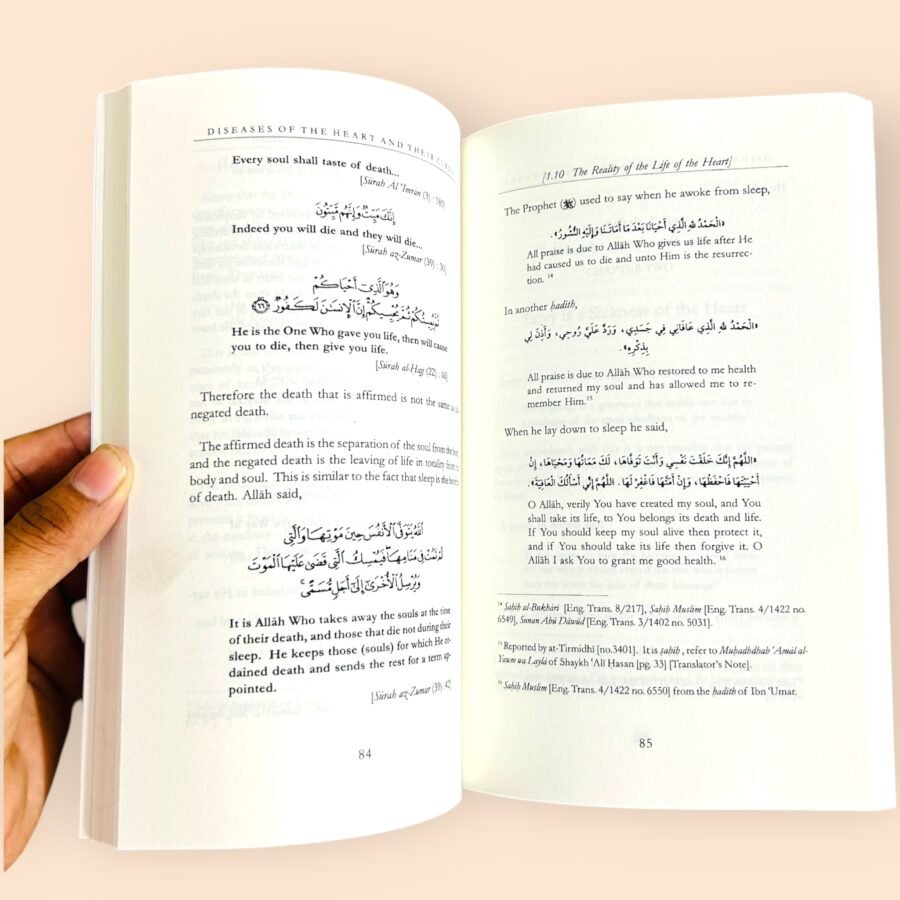 DISEASES OF THE HEART AND THEIR CURES
Every soul shall taste of death...
[Sūrah Āl 'Imran (3) : 185]
إِنَّكَ مَيِّتٌ وَإِنَّهُم مَّيِّتُونَ
Indeed you will die and they will die...
[Sūrah az-Zumar (39) : 30]
وَهُوَ الَّذِي أَحْيَاكُمْ
ثُمَّ يُمِيتُكُمْ ثُمَّ يُحْيِيكُمْ إِنَّ الْإِنسَانَ لَكَفُورٌ ٦٦
He is the One Who gave you life, then will cause
you to die, then give you life.
[Sūrah al-Ḥajj (22) : 66]
Therefore the death that is affirmed is not the same as the
negated death.
The affirmed death is the separation of the soul from the body
and the negated death is the leaving of life in totality from the
body and soul. This is similar to the fact that sleep is the brother
of death. Allāh said,
اللَّهُ يَتَوَفَّى الْأَنفُسَ حِينَ مَوْتِهَا وَالَّتِي
لَمْ تَمُتْ فِي مَنَامِهَا فَيُمْسِكُ الَّتِي قَضَىٰ عَلَيْهَا الْمَوْتَ
وَيُرْسِلُ الْأُخْرَىٰ إِلَىٰ أَجَلٍ مُّسَمًّى
It is Allāh Who takes away the souls at the time
of their death, and those that die not during their
sleep. He keeps those (souls) for which He or-
dained death and sends the rest for a term ap-
pointed.
[Sūrah az-Zumar (39) : 42]
84
[1.10 The Reality of the Life of the Heart]
The Prophet (ﷺ) used to say when he awoke from sleep,
«الْحَمْدُ للهِ الَّذِي أَحْيَانَا بَعْدَ مَا أَمَاتَنَا وَإِلَيْهِ النُّشُورُ».
All praise is due to Allāh Who gives us life after He
had caused us to die and unto Him is the resurrec-
tion. 14
In another ḥadīth,
«الْحَمْدُ للهِ الَّذِي عَافَانِي فِي جَسَدِي، وَرَدَّ عَلَيَّ رُوحِي، وَأَذِنَ لِي
بِذِكْرِهِ».
All praise is due to Allāh Who restored to me health
and returned my soul and has allowed me to re-
member Him.15
When he lay down to sleep he said,
«اللَّهُمَّ إِنَّكَ خَلَقْتَ نَفْسِي وَأَنْتَ تَوَفَّاهَا، لَكَ مَمَاتُهَا وَمَحْيَاهَا، إِنْ
أَحْيَيْتَهَا فَاحْفَظْهَا، وَإِنْ أَمَتَّهَا فَاغْفِرْ لَهَا. اللَّهُمَّ إِنِّي أَسْأَلُكَ الْعَافِيَةَ».
O Allāh, verily You have created my soul, and You
shall take its life, to You belongs its death and life.
If You should keep my soul alive then protect it,
and if You should take its life then forgive it. O
Allāh I ask You to grant me good health. 16
14 Ṣaḥīḥ al-Bukhārī [Eng. Trans. 8/217], Ṣaḥīḥ Muslim [Eng. Trans. 4/1422 no.
6549], Sunan Abū Dāwūd [Eng. Trans. 3/1402 no. 5031].
15 Reported by at-Tirmidhī [no.3401]. It is ṣaḥīḥ, refer to Muhadhdhab 'Amāl al-
Yawm wa Layla of Shaykh 'Alī Ḥasan [pg. 33] [Translator's Note].
16 Ṣaḥīḥ Muslim [Eng. Trans. 4/1422 no. 6550] from the ḥadīth of Ibn 'Umar.
85